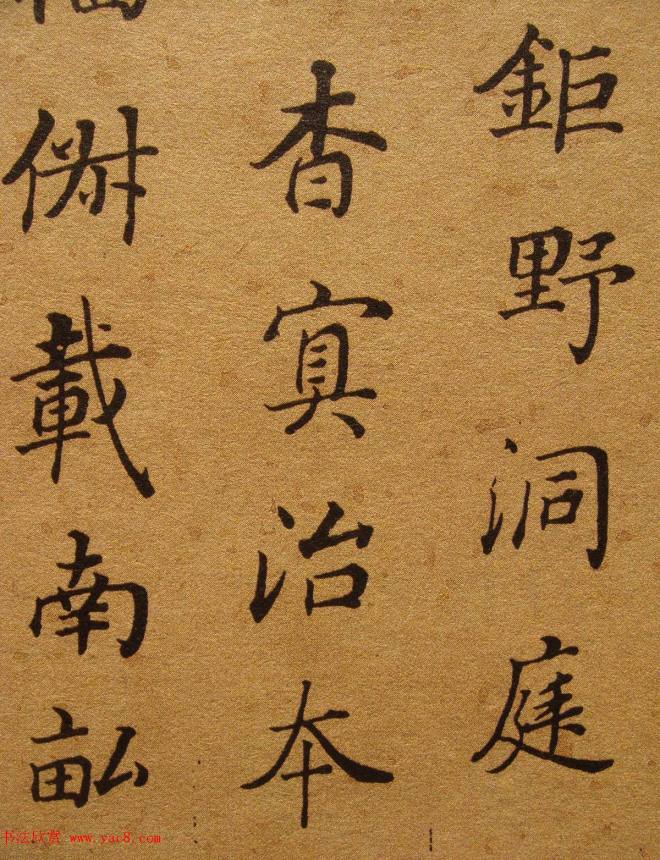 鉅野洞庭
杳冥治本
俶載南畝
书法欣赏 www.yac8.com